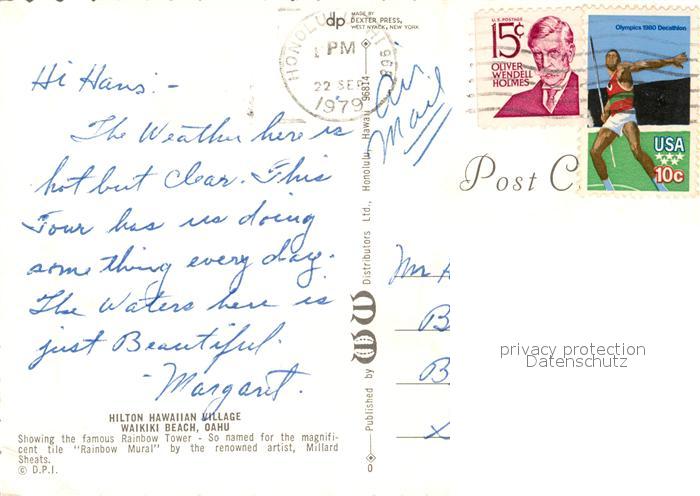 dp MADE BY
DEXTER PRESS,
WEST NYACK, NEW YORK
HONOLULU, HI 968
PM
22 SEP
1979
U.S. POSTAGE
15¢
OLIVER
WENDELL
HOLMES
Olympics 1980 Decathlon
USA
10c
Air
Mail
Post C
Hi Hans:-
The Weather here is
hot but clear. This
Tour has us doing
something every day.
The Waters here is
just Beautiful.
-Margaret.
HILTON HAWAIIAN VILLAGE
WAIKIKI BEACH, OAHU
Showing the famous Rainbow Tower - So named for the magnifi-
cent tile "Rainbow Mural" by the renowned artist, Millard
Sheats.
© D.P.I.
Published by WW Distributors Ltd., Honolulu, Hawaii 96814
Mr H
B
B
privacy protection
Datenschutz